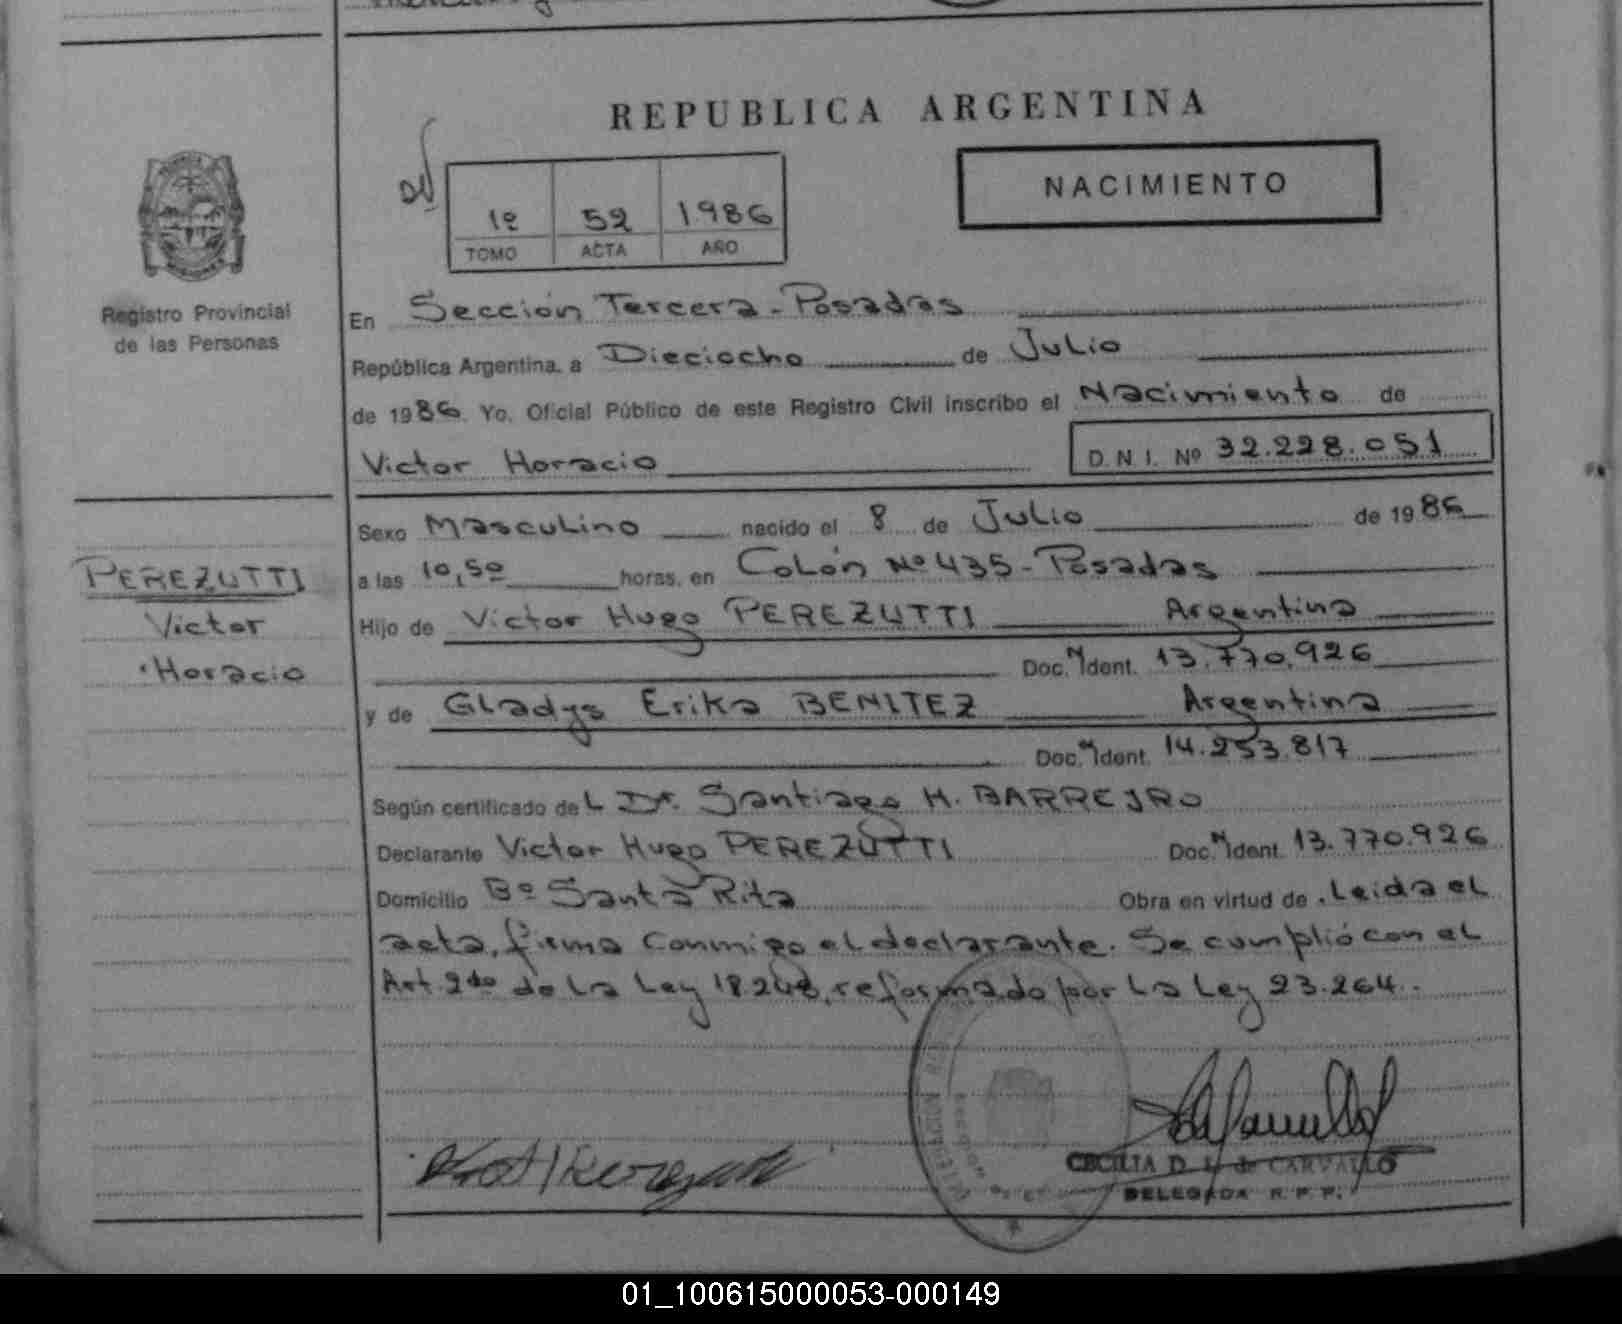 REPUBLICA ARGENTINA
NACIMIENTO
1º 52 1986
TOMO ACTA AÑO
Registro Provincial
de las Personas
En Sección Tercera - Posadas
República Argentina, a Dieciocho de Julio
de 1986. Yo, Oficial Público de este Registro Civil inscribo el Nacimiento de
Victor Horacio D.N.I. Nº 32.228.051
Sexo Masculino nacido el 8 de Julio de 1986
a las 10,50 horas, en Colón Nº 435 - Posadas
PEREZUTTI
Victor
Horacio
Hijo de Victor Hugo PEREZUTTI Argentina
Doc. N Ident. 13.770.926
y de Gladys Erika BENITEZ Argentina
Doc. N Ident. 14.253.817
Según certificado del Dr. Santiago H. BARREJRO
Declarante Victor Hugo PEREZUTTI Doc. N Ident. 13.770.926
Domicilio Bº Santa Rita Obra en virtud de Leida el
acta, firma conmigo el declarante. Se cumplió con el
Art 2do de la Ley 18.248, reformado por la Ley 23.264.
CECILIA D. L. de CARVALLO
DELEGADA R. P. P.
01_100615000053-000149